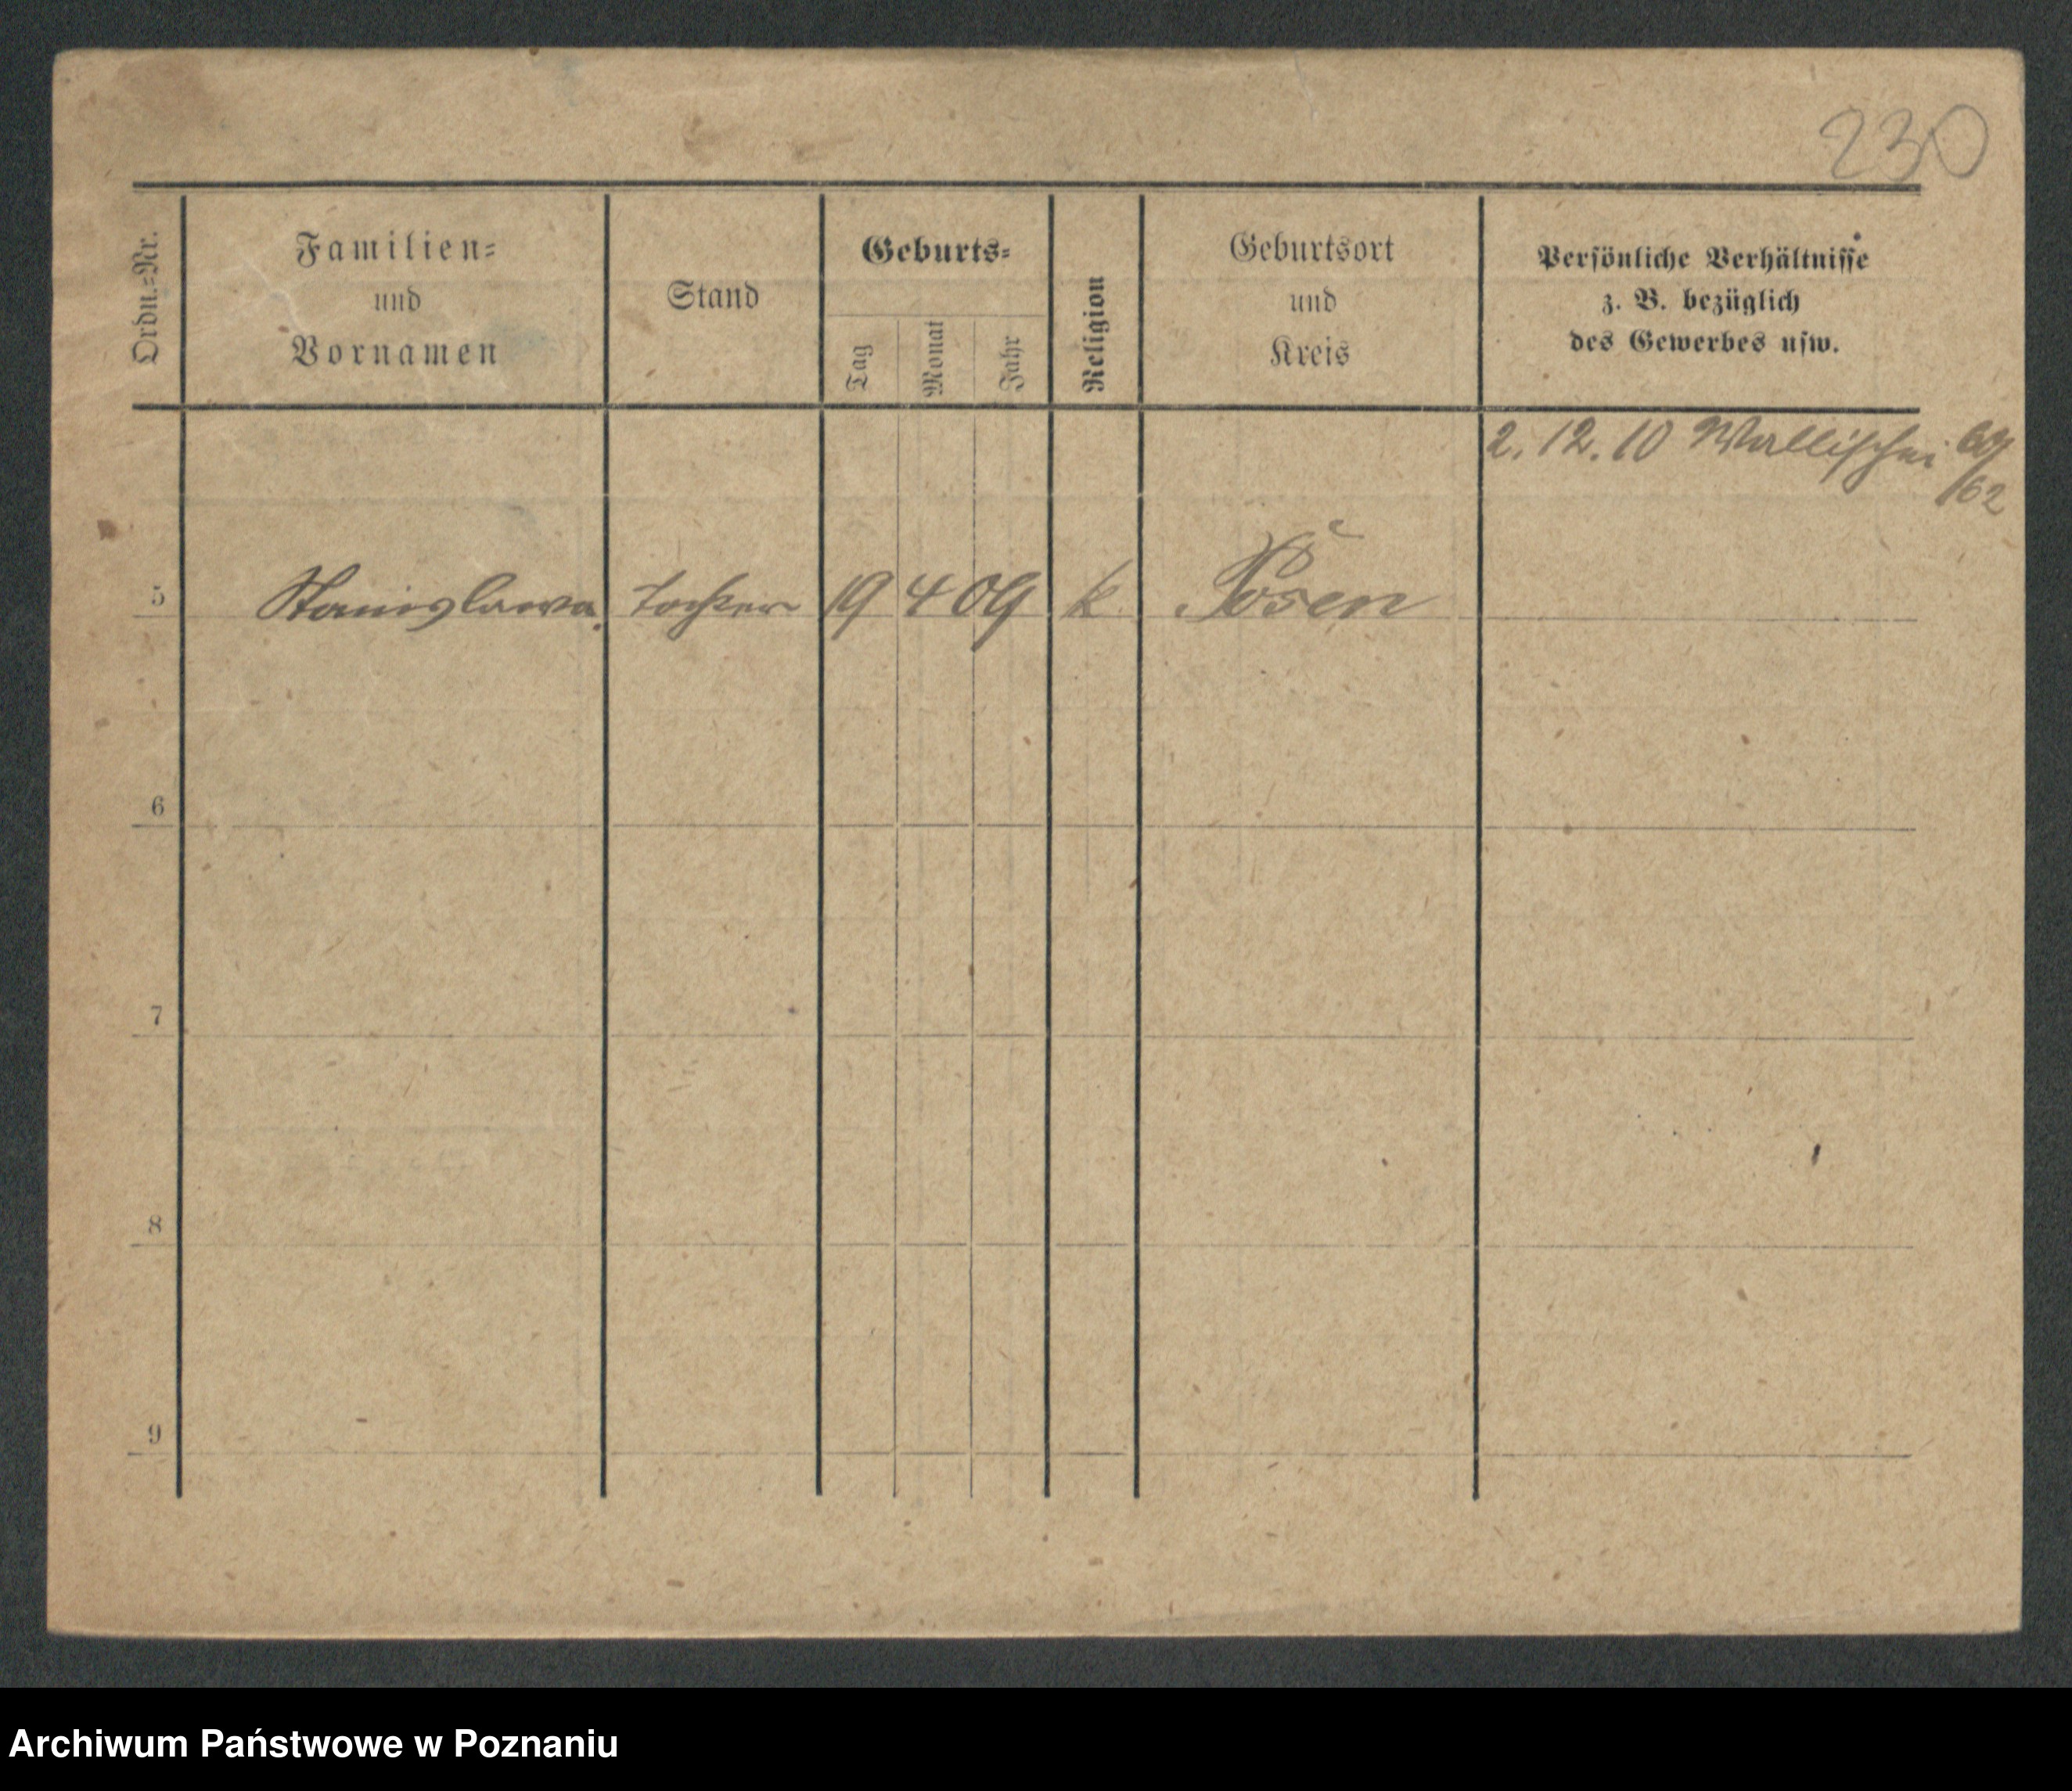 230
Ordn.-Nr.
Familien-
und
Vornamen
Stand
Geburts-
Tag
Monat
Jahr
Religion
Geburtsort
und
Kreis
Persönliche Verhältnisse
z. B. bezüglich
des Gewerbes usw.
2. 12. 10 Wallischei
62
5 Stanislawa 19 4 09 k Posen
6
7
8
9
Archiwum Państwowe w Poznaniu